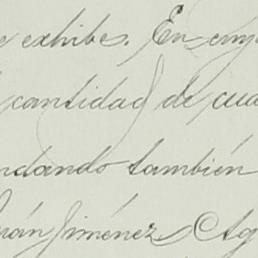 e exhibe. En cuy
cantidad de cua
ndando también
rán Jiménez, Ag